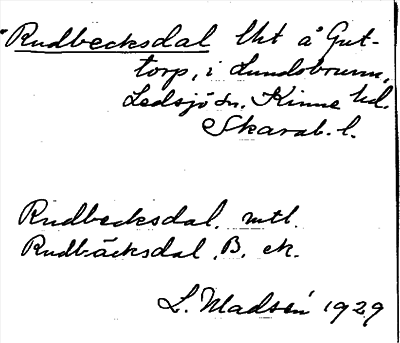 Rudbecksdal lht å Gut-
torp, i Lundsbrunn,
Ledsjö sn. Kinne hd.
Skarab. l.
Rudbecksdal. mtl.
Rudbäcksdal. B. ek.
L. Madsén 1929